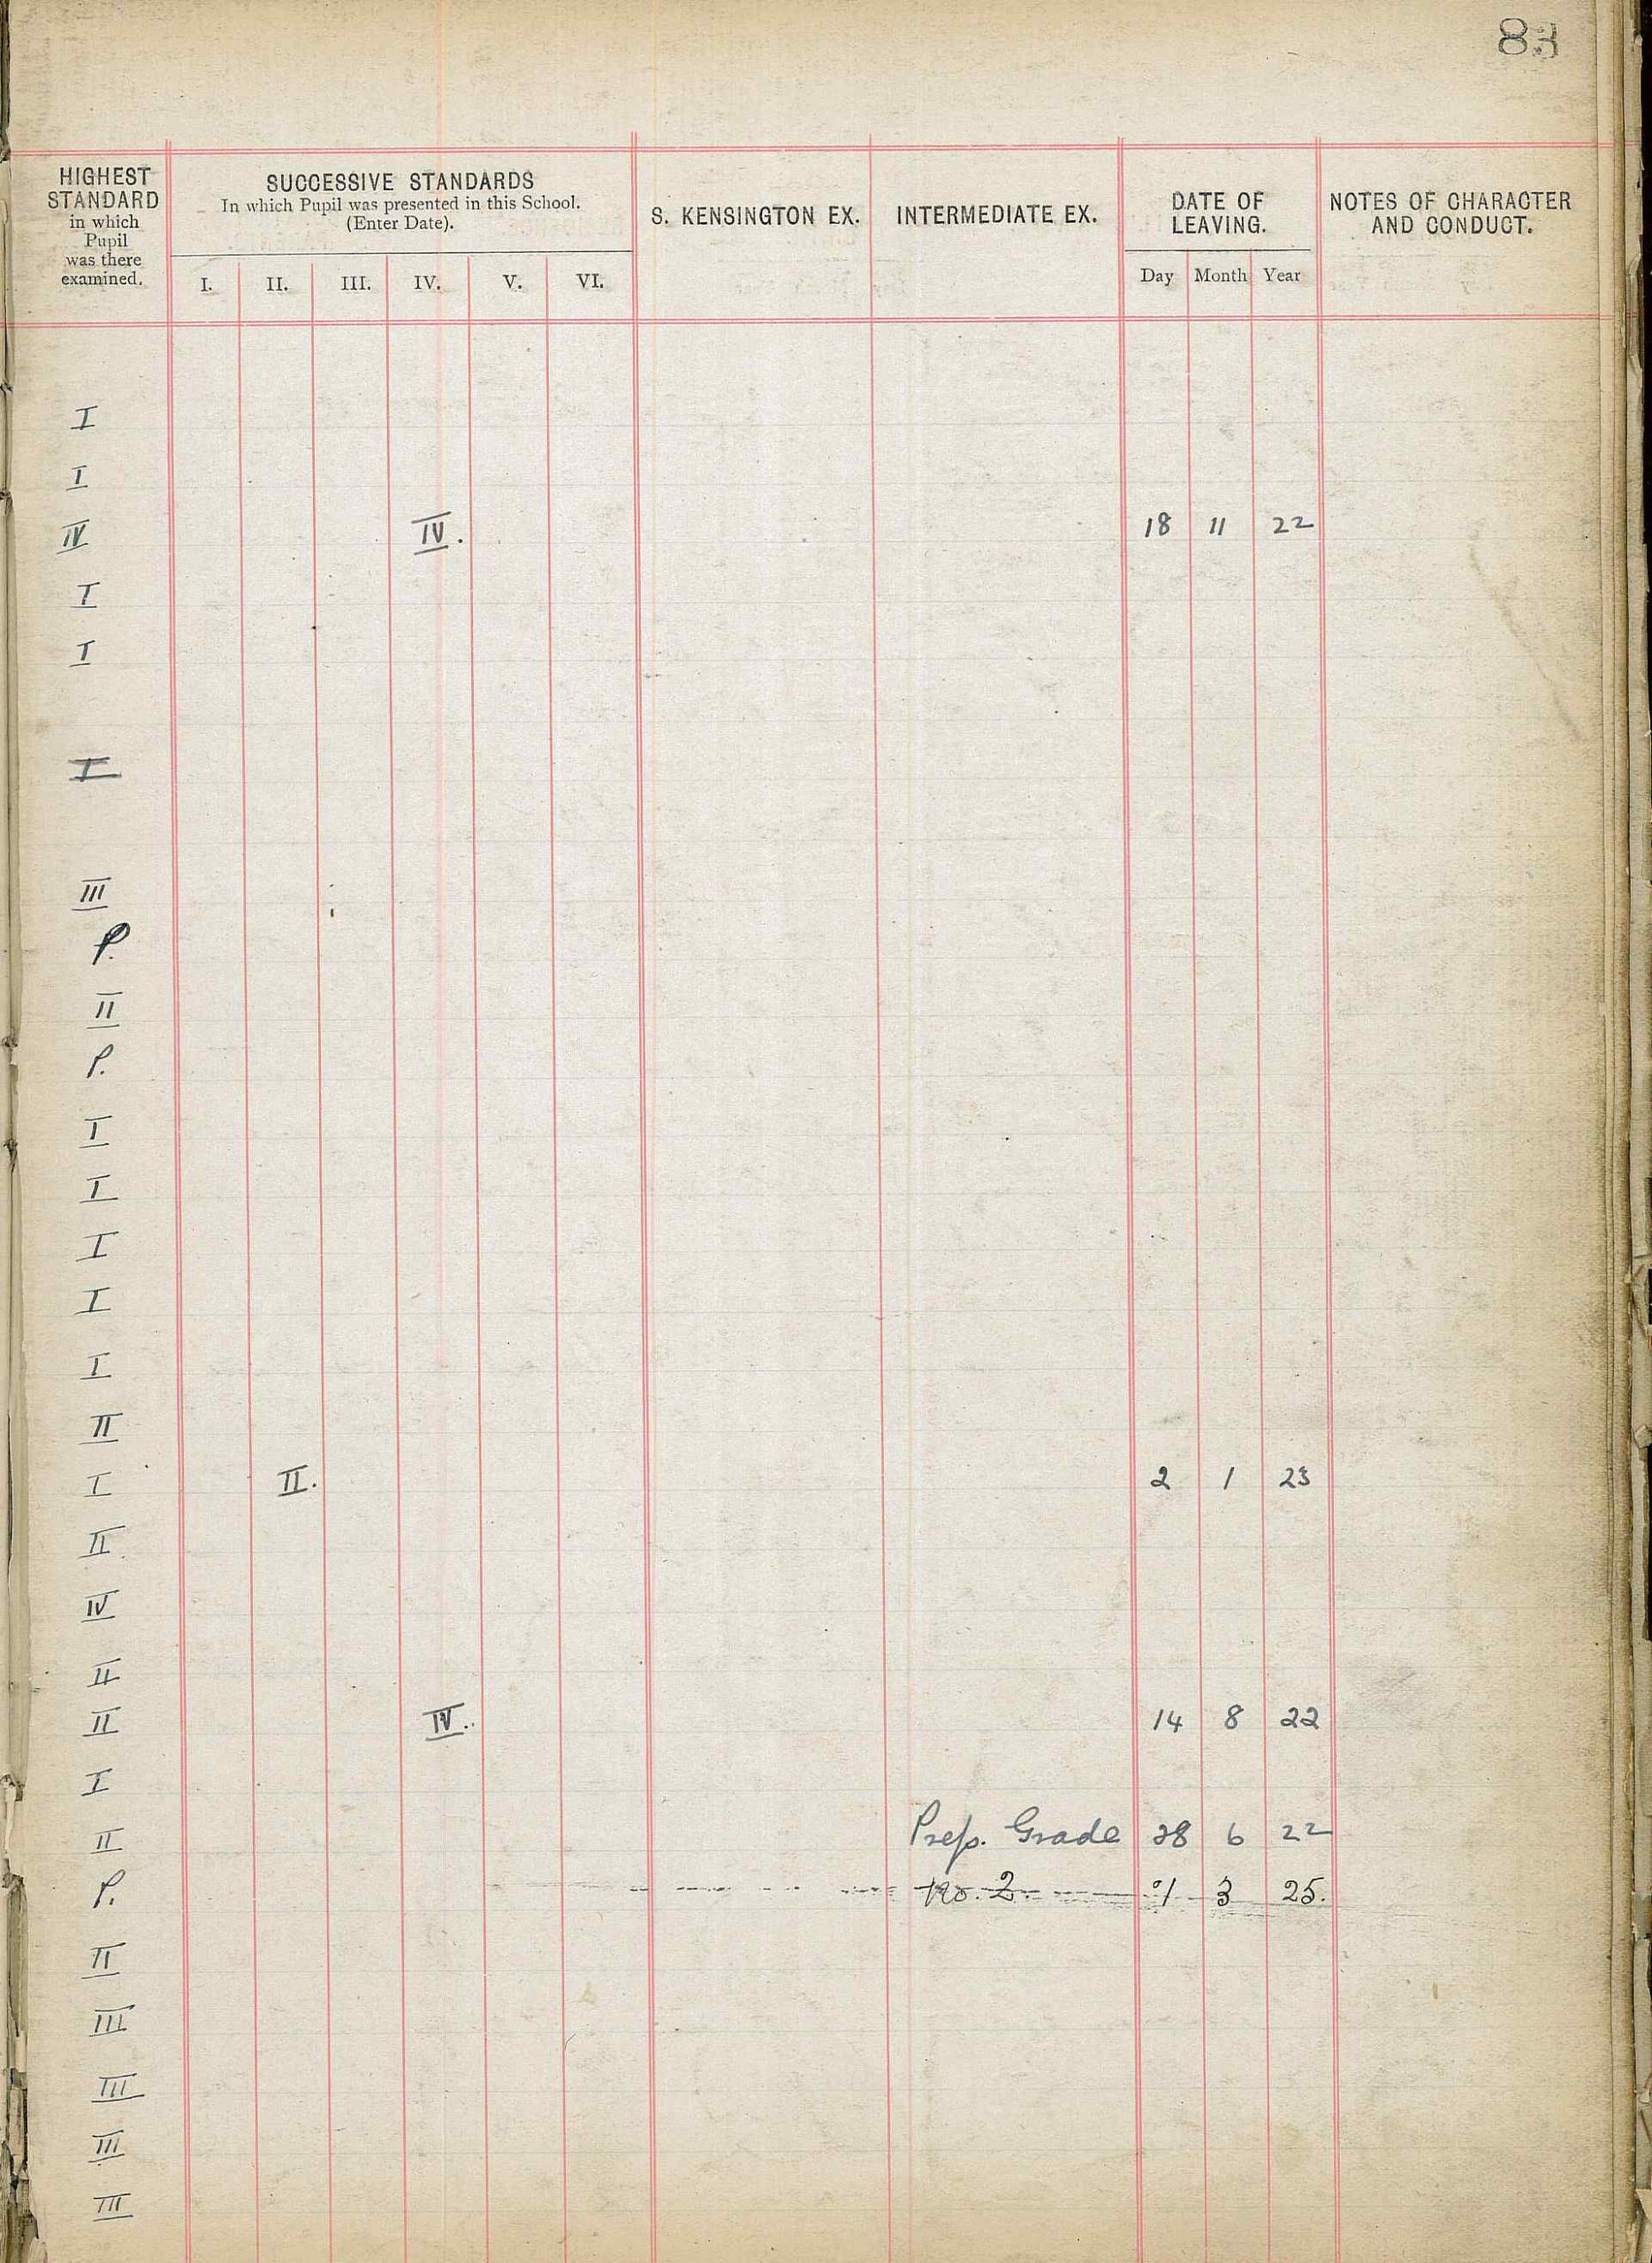 83
HIGHEST STANDARD in which Pupil was there examined.
SUCCESSIVE STANDARDS
In which Pupil was presented in this School.
(Enter Date).
I. II. III. IV. V. VI.
S. KENSINGTON EX.
INTERMEDIATE EX.
DATE OF LEAVING.
Day Month Year
NOTES OF CHARACTER AND CONDUCT.
I
I
IV IV. 18 11 22
I
I
I
III
P.
II
P.
I
I
I
I
I
II
I II. 2 1 23
II.
IV
II
II IV. 14 8 22
I
II Prep. Grade 28 6 22
P. No. 2. 1 3 25.
II
III
III
III
III